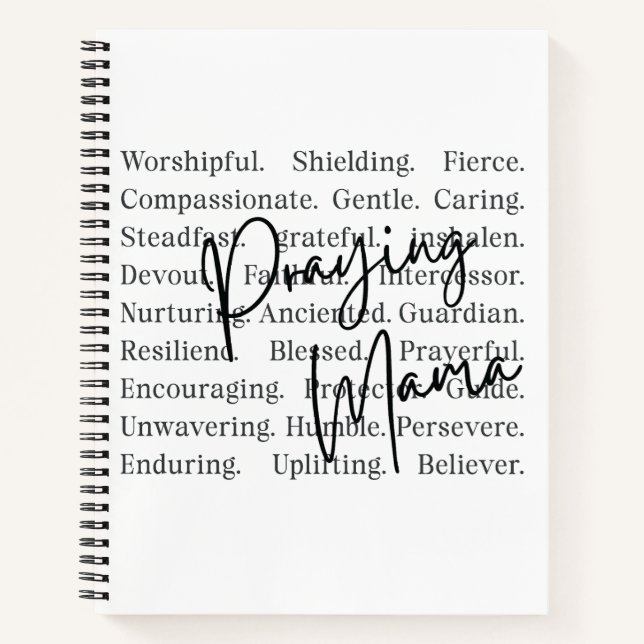 Worshipful. Shielding. Fierce.
Compassionate. Gentle. Caring.
Steadfast. grateful. inshalen.
Devout. Faithful. Intercessor.
Nurturing. Anciented. Guardian.
Resiliend. Blessed. Prayerful.
Encouraging. Protector. Guide.
Unwavering. Humble. Persevere.
Enduring. Uplifting. Believer.
Praying
Mama